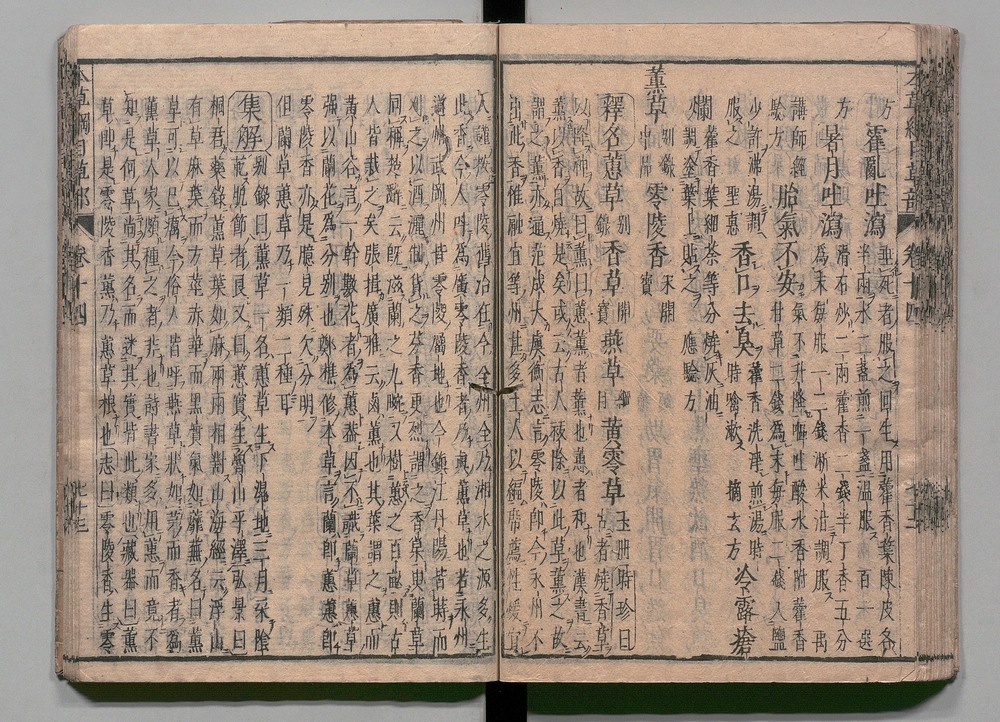 方 霍亂吐瀉 垂死者服之回生用藿香葉陳皮各
半兩水二盞煎一盞溫服 百一選
方 暑月吐瀉 滑石炒二兩藿香二錢半丁香五分
爲末每服一二錢淅米泔調服 禹
講師經
驗方 胎氣不安 氣不升降嘔吐酸水香附藿香
甘草二錢爲末每服二錢入鹽
少許沸湯調
服之 聖惠 香口去臭 藿香洗淨煎湯時
時噙漱 摘玄方 冷露瘡
爛 藿香葉細茶等分燒灰油
調塗葉上貼之 應驗方
薰草 別錄
中品 零陵香 宋開
寶
釋名蕙草 別
錄 香草 開
寶 燕草 黃零草 玉冊 時珍曰
古者燒香草
以降神故曰薰曰蕙薰者薰也蕙者和也漢書云
薰以香自燒是矣或云古人祓除以此草薰之故
謂之薰亦通范成大虞衡志言零陵即今永州不
出此香惟融宜等州甚多土人以編席薦性暖宜
人謹按零陵舊治在今全州全乃湘水之源多生
此香今人呼爲廣零陵香者乃眞薰草也若永州
道州武岡州皆零陵屬地也今鎮江丹陽皆蒔而
刈之以酒灑制貨之芬香更烈謂之香草與蘭草
同稱楚辭云既滋蘭之九畹又樹蕙之百畝則古
人皆栽之矣張揖廣雅云鹵薰也其葉謂之蕙而
黃山谷言一幹數花者爲蕙蓋因不識蘭草蕙草
强以蘭花爲分別也鄭樵修本草言蘭即蕙蕙即
零陵香亦是臆見殊欠分明
但蘭草蕙草乃一類二種耳
集解 別錄曰薰草一名蕙草生下濕地三月采陰
乾脫節者良又曰蕙實生魯山平澤弘景曰
桐君藥錄薰草葉如麻兩兩相對山海經云浮山
有草麻葉而方莖赤華而黑實氣如蘼蕪名曰薰
草可以已癘今俗人皆呼燕草狀如茅而香者爲
薰草人家頗種之者非也詩書家多用蕙而竟不
知是何草尚其名而迷其實皆此類也藏器曰薰
草即是零陵香薰乃蕙草根也志曰零陵香生零
本草綱目草部 卷十四